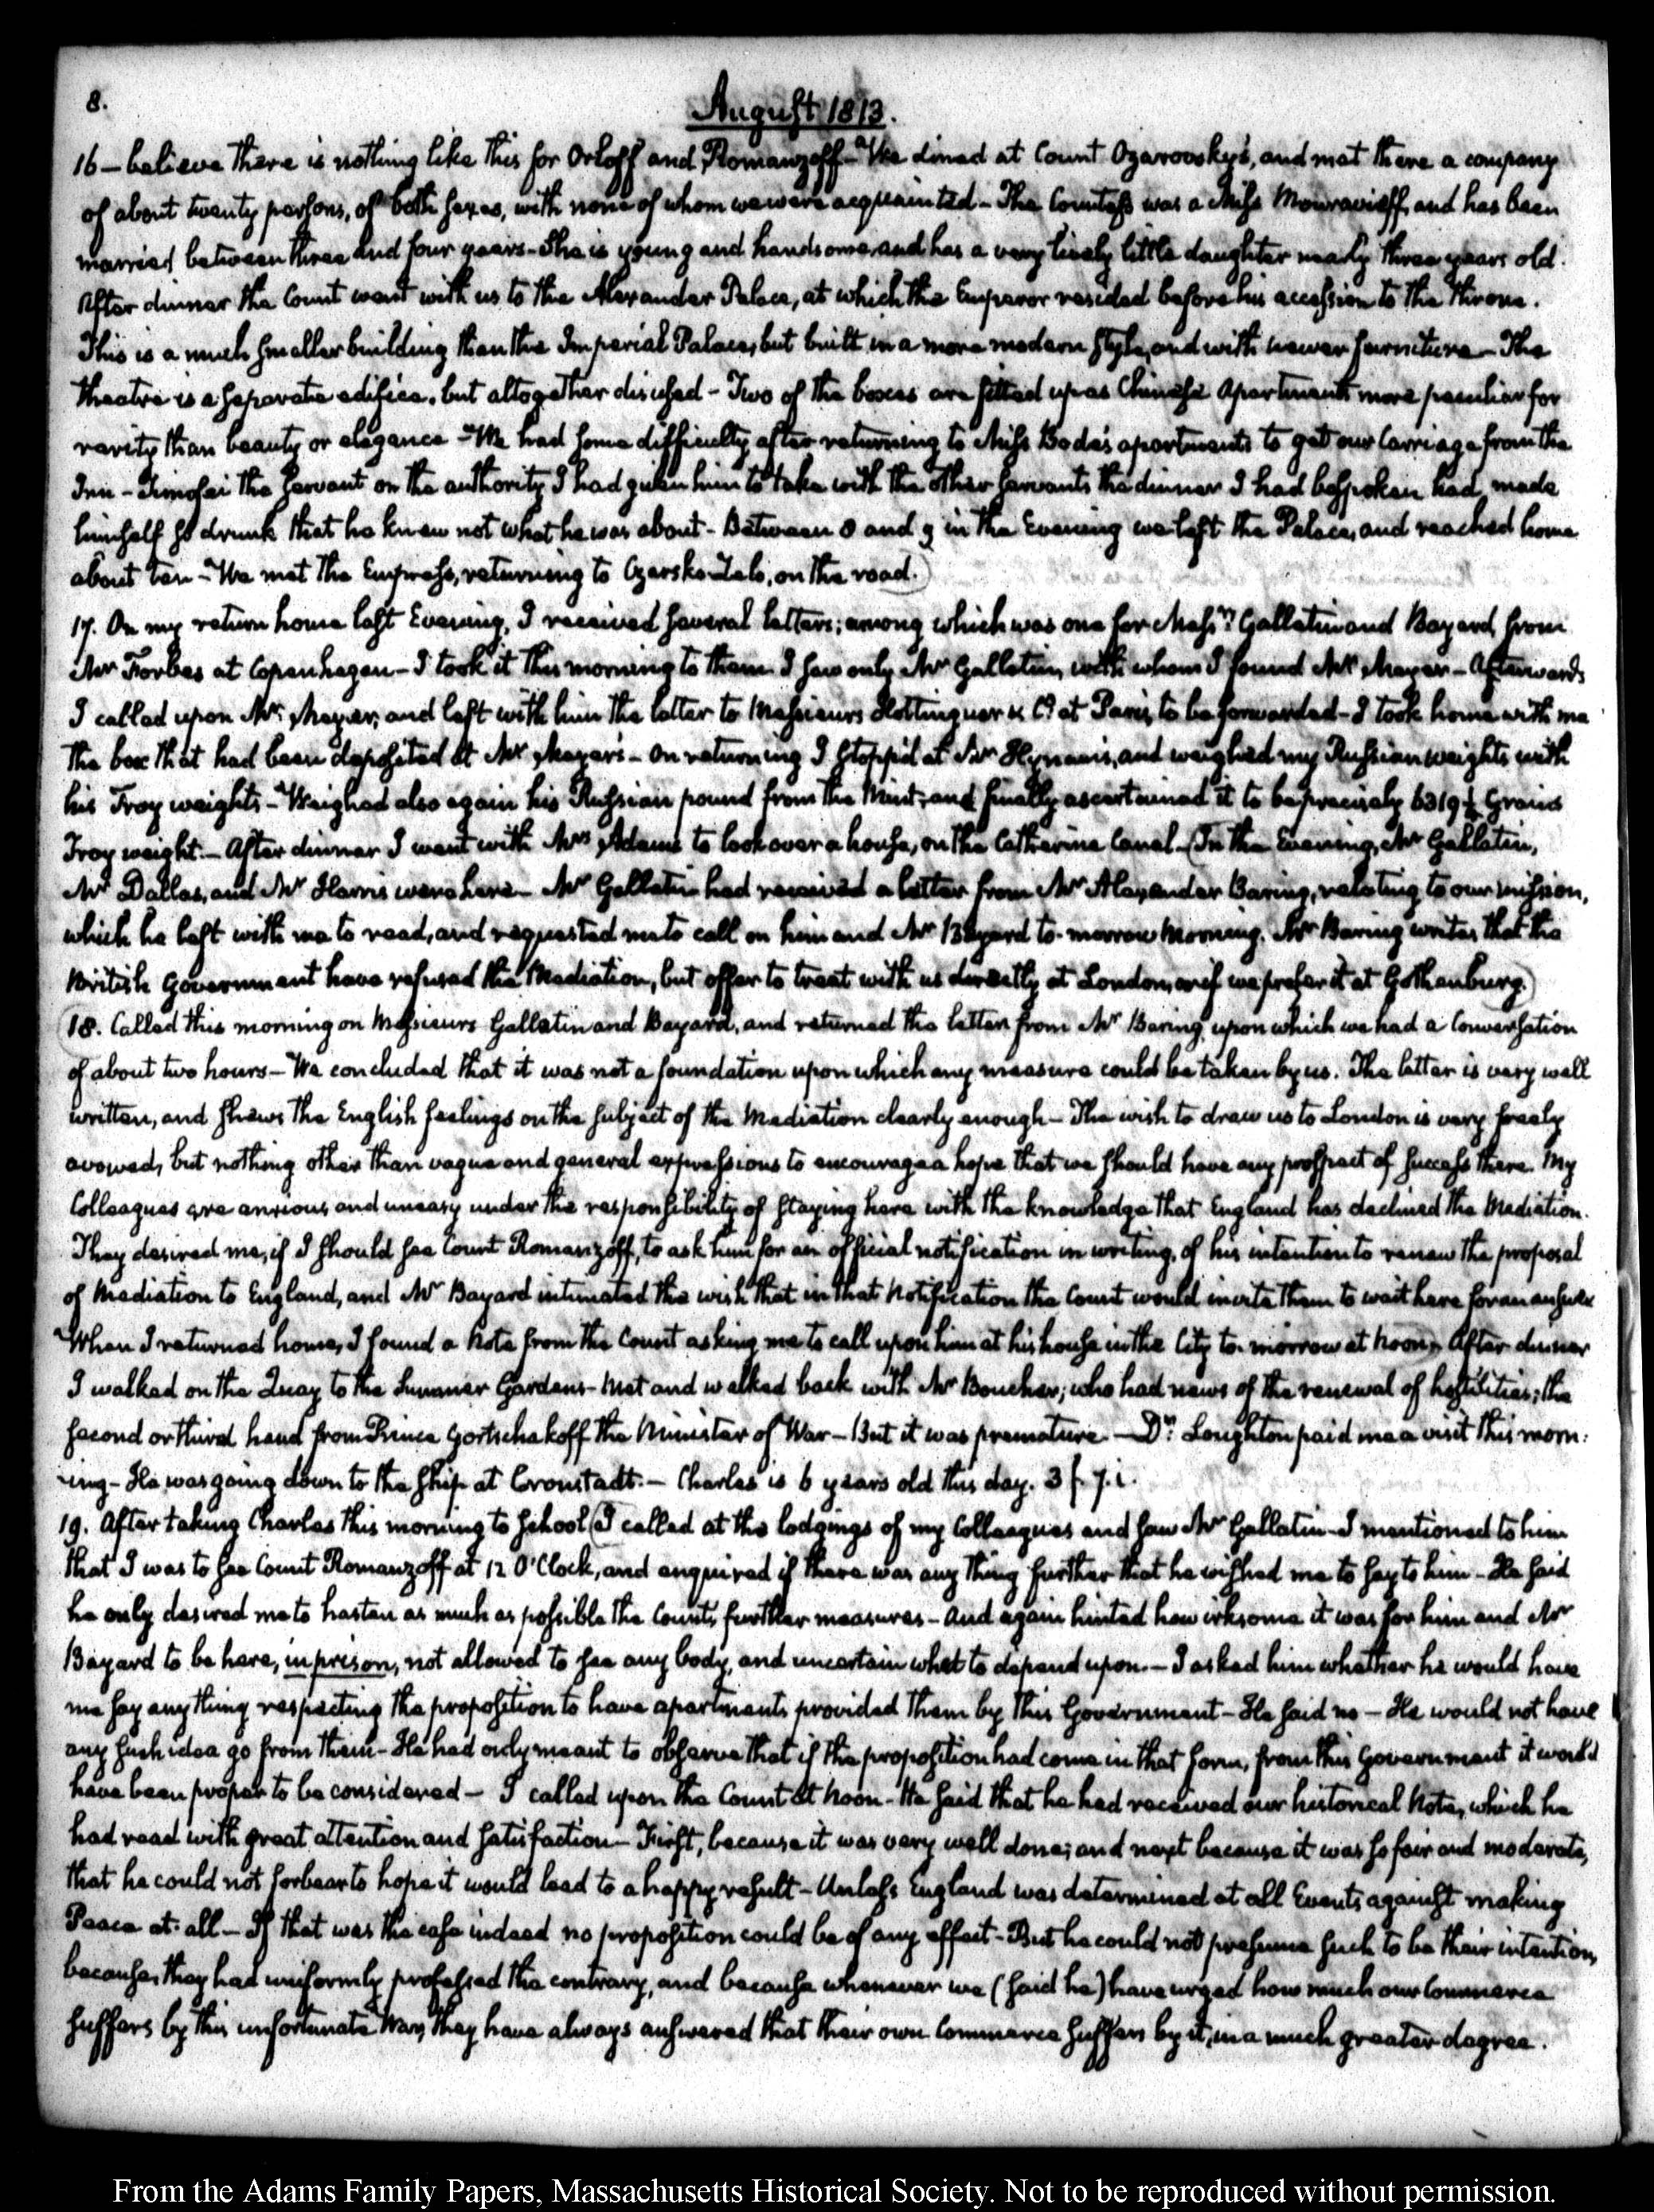 8.
August 1813.
16 — believe there is nothing like this for Orloff and Romanzoff — We dined at Count Ozarovsky's, and met there a company
of about twenty persons, of both sexes, with none of whom we were acquainted — The Countess was a Miss Mouravieff, and has been
married between three and four years — She is young and handsome and has a very lively little daughter nearly three years old.
After dinner the Count went with us to the Alexander Palace, at which the Emperor resided before his accession to the throne.
This is a much smaller building than the Imperial Palace, but built in a more modern style, and with newer furniture — The
theatre is a separate edifice, but altogether disused — Two of the boxes are fitted up as Chinese Apartments more peculiar for
rarity than beauty or elegance — We had some difficulty after returning to Miss Bode's apartments to get our Carriage from the
Inn — Timofei the servant on the authority I had given him to take with the other servants the dinner I had bespoken had made
himself so drunk that he knew not what he was about — Between 8 and 9 in the Evening we left the Palace, and reached home
about ten — We met the Empress, returning to Czarsko-Zelo, on the road.)
17. On my return home last Evening, I received several letters; among which was one for Messrs. Gallatin and Bayard, from
Mr Forbes at Copenhagen — I took it this morning to them. I saw only Mr Gallatin, with whom I found Mr Meyer — Afterwards
I called upon Mr Meyer, and left with him the letter to Messieurs Hottinguer & Co. at Paris, to be forwarded — I took home with me
the box that had been deposited at Mr Meyer's — On returning I stopp'd at Mr Hynam's, and weighed my Russian weights with
his Troy weights — Weighed also again his Russian pound from the Mint; and finally ascertained it to be precisely 6319½ Grains
Troy weight. — After dinner I went with Mrs Adams to look over a house, on the Catherine Canal. (In the Evening, Mr Gallatin,
Mr Dallas, and Mr Harris were here — Mr Gallatin had received a letter from Mr Alexander Baring, relating to our mission,
which he left with me to read, and requested me to call on him and Mr Bayard to-morrow Morning. Mr Baring writes that the
British Government have refused the Mediation, but offer to treat with us directly at London, or if we prefer it at Gothenburg.)
(18. Called this morning on Messieurs Gallatin and Bayard, and returned the letter from Mr Baring, upon which we had a Conversation
of about two hours — We concluded that it was not a foundation upon which any measure could be taken by us. The letter is very well
written, and shews the English feelings on the subject of the Mediation clearly enough — The wish to draw us to London is very freely
avowed, but nothing other than vague and general expressions to encourage a hope that we should have any prospect of success there. My
Colleagues are anxious and uneasy under the responsibility of staying here with the knowledge that England has declined the Mediation.
They desired me, if I should see Count Romanzoff, to ask him for an official notification in writing, of his intention to renew the proposal
of Mediation to England, and Mr Bayard intimated the wish that in that Notification the Count would invite them to wait here for an answer
When I returned home, I found a Note from the Count asking me to call upon him at his house in the City to-morrow at Noon) After dinner
I walked on the Quay to the Summer Gardens — Met and walked back with Mr Boucher; who had news of the renewal of hostilities; the
second or third hand from Prince Gortschakoff the Minister of War — But it was premature — Dr. Loughton paid me a visit this morn-
-ing — He was going down to the ship at Cronstadt. — Charles is 6 years old this day. 3 f. 7. i.
19. After taking Charles this morning to School (I called at the lodgings of my Colleagues and saw Mr Gallatin — I mentioned to him
that I was to see Count Romanzoff at 12 O'Clock, and enquired if there was any thing further that he wished me to say to him — He said
he only desired me to hasten as much as possible the Count's further measures — and again hinted how irksome it was for him and Mr
Bayard to be here, in prison, not allowed to see any body, and uncertain what to depend upon. — I asked him whether he would have
me say any thing respecting the proposition to have apartments provided them by this Government — He said no — He would not have
any such idea go from them — He had only meant to observe that if the proposition had come in that form, from this Government it would
have been proper to be considered — I called upon the Count at Noon — He said that he had received our historical Note, which he
had read with great attention and satisfaction — First, because it was very well done; and next because it was so fair and moderate,
that he could not forbear to hope it would lead to a happy result — Unless England was determined at all Events against making
Peace at all — If that was the case indeed no proposition could be of any effect — But he could not presume such to be their intention,
because they had uniformly professed the contrary, and because whenever we (said he) have urged how much our Commerce
suffers by this unfortunate War, they have always answered that their own Commerce suffers by it, in a much greater degree.
From the Adams Family Papers, Massachusetts Historical Society. Not to be reproduced without permission.